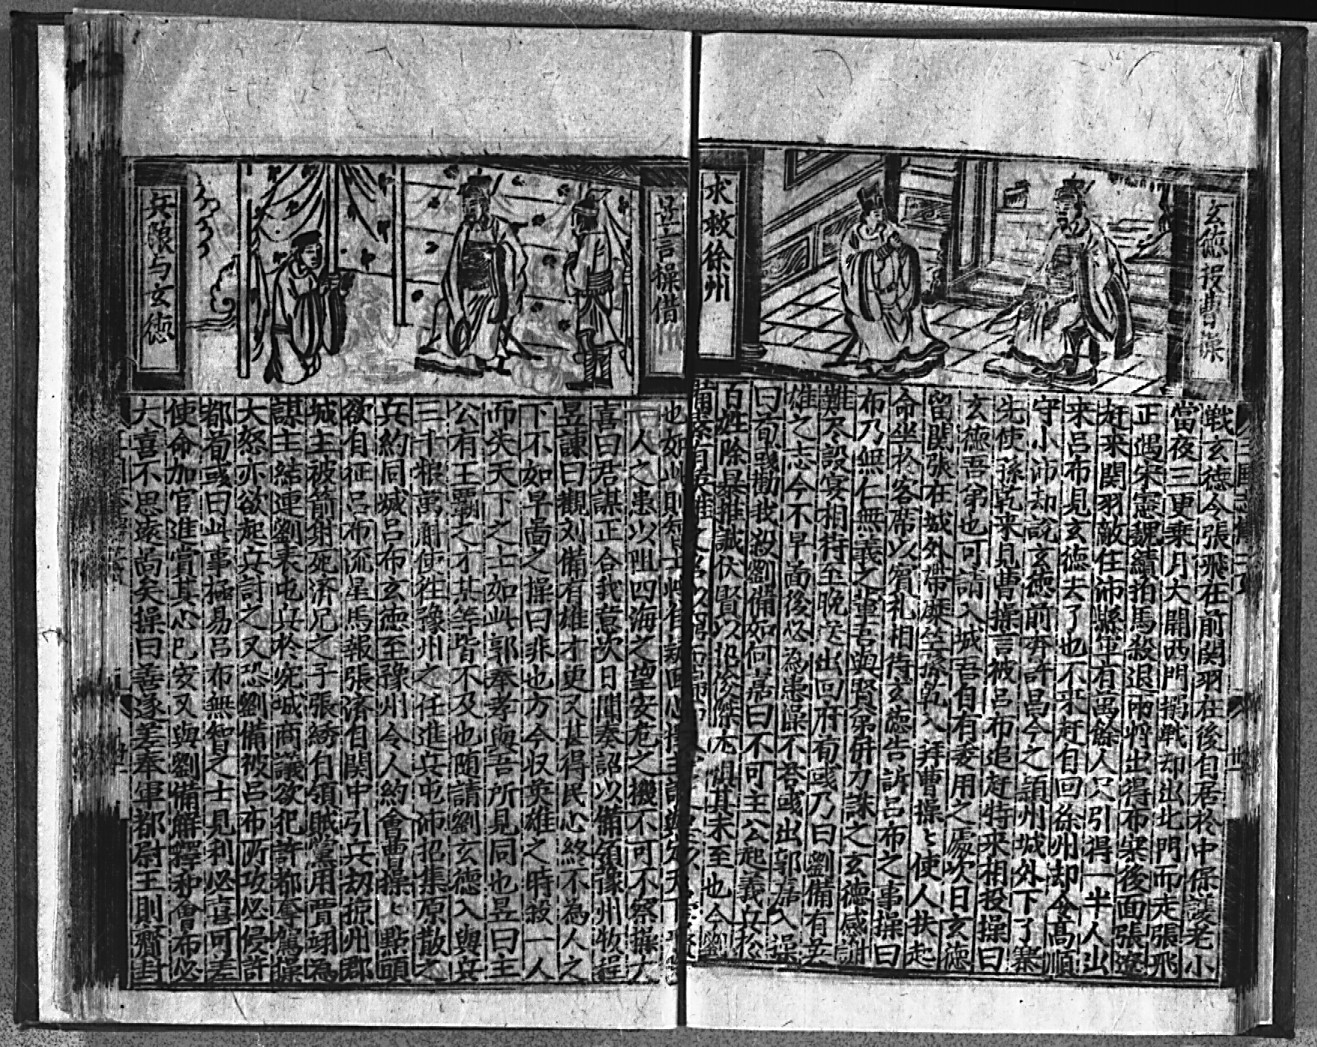 玄德投曹操
求救徐州
戰玄德令張飛在前関羽在後自居於中保護老小
當夜三更乘月大開西門搦戰却出北門而走張飛
正遇宋憲魏續拍馬殺退兩將出得布寨後面張遼
赶來関羽敵住沛縣軍有萬餘人只引得一半人出
來呂布見玄德去了也不來赶自回徐州却令高順
守小沛却說玄德前奔許昌今之潁州城外下了寨
先使孫乾來見曹操言被呂布追赶特來相投操曰
玄德吾弟也可請入城吾自有委用之處次日玄德
留関張在城外帶糜竺孫乾入拜曹操〻使人扶起
命坐於客席以賓礼相待玄德告訴呂布之事操曰
布乃無仁無義之輩吾與賢弟併力誅之玄德感謝
難尽設宴相待至晚送出回府荀彧乃曰劉備有英
雄之志今不早啚後必為患操不荅彧出郭嘉入操
曰荀彧勸我殺劉備如何嘉曰不可主公起義兵於
百姓除暴推誠伏賢以招俊傑尤惧其未至也今劉
昱言操借
兵粮与玄德
一人之患以阻四海之望安危之機不可不察操大
喜曰君謀正合我意次日聞奏詔以備領豫州牧程
昱諫曰觀刘備有雄才更又甚得民心終不為人之
下不如早啚之操曰非也方今収英雄之時殺一人
而失天下之士如此郭奉孝與吾所見同也昱曰主
公有王霸之才某等皆不及也随請劉玄德入與兵
三千粮萬斛使徃豫州之任進兵屯沛招集原散之
兵約同滅呂布玄德至豫州令人約會曹操〻點頭
欲自征呂布流星馬報張済自関中引兵刼掠州郡
城主被箭射死済兄之子張綉自領賊黨用賈翊為
謀主結連劉表屯兵於宛城商議欲犯許都奪駕操
大怒亦欲起兵討之又恐劉備被呂布所攻必侵許
都荀彧曰此事極易呂布無智之士見利必喜可差
使命加官進賞其心已安又與劉備解釋和會布必
大喜不思遠啚矣操曰善遂差奉軍都尉王則賫封